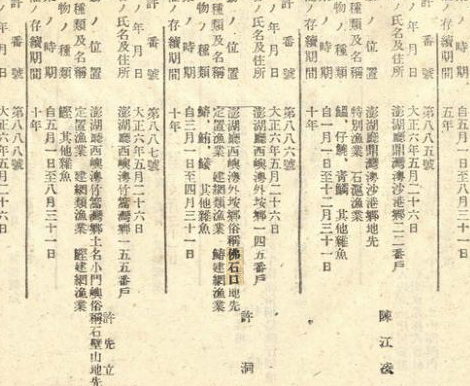 ノ時期 自五月一日至八月三十一日
ノ存續期間 五年
許番號 第八八五號
年月日 大正六年五月二十六日
ノ氏名及住所 澎湖廳鼎灣澳沙港鄉二二番戶 陳江
ノ位置 澎湖廳鼎灣澳沙港鄉地先
種類及名稱 特別漁業 石滬漁業
物ノ種類 鰮、仔、青鱗、其他雜魚
ノ時期 自一月一日至十二月三十一日
ノ存續期間 十年
許番號 第八八六號
年月日 大正六年五月二十六日
ノ氏名及住所 澎湖廳西嶼澳外垵鄉一四五番戶 許洞
ノ位置 澎湖廳西嶼澳外垵鄉俗稱佛石口地先
種類及名稱 定置漁業 建網類漁業 鰆建網漁業
物ノ種類 鰆、鮪、其他雜魚
ノ時期 自三月一日至四月三十一日
ノ存續期間 十年
許番號 第八八七號
年月日 大正六年五月二十六日
ノ氏名及住所 澎湖廳西嶼澳竹篙灣鄉一五五番戶 許先立
ノ位置 澎湖廳西嶼澳竹篙灣鄉土名小門嶼俗稱石壁山地先
種類及名稱 定置漁業 建網類漁業 鰹建網漁業
物ノ種類 鰹、其他雜魚
ノ時期 自五月一日至八月三十一日
ノ存續期間 十年
許番號 第八八八號
年月日 大正六年五月二十六日